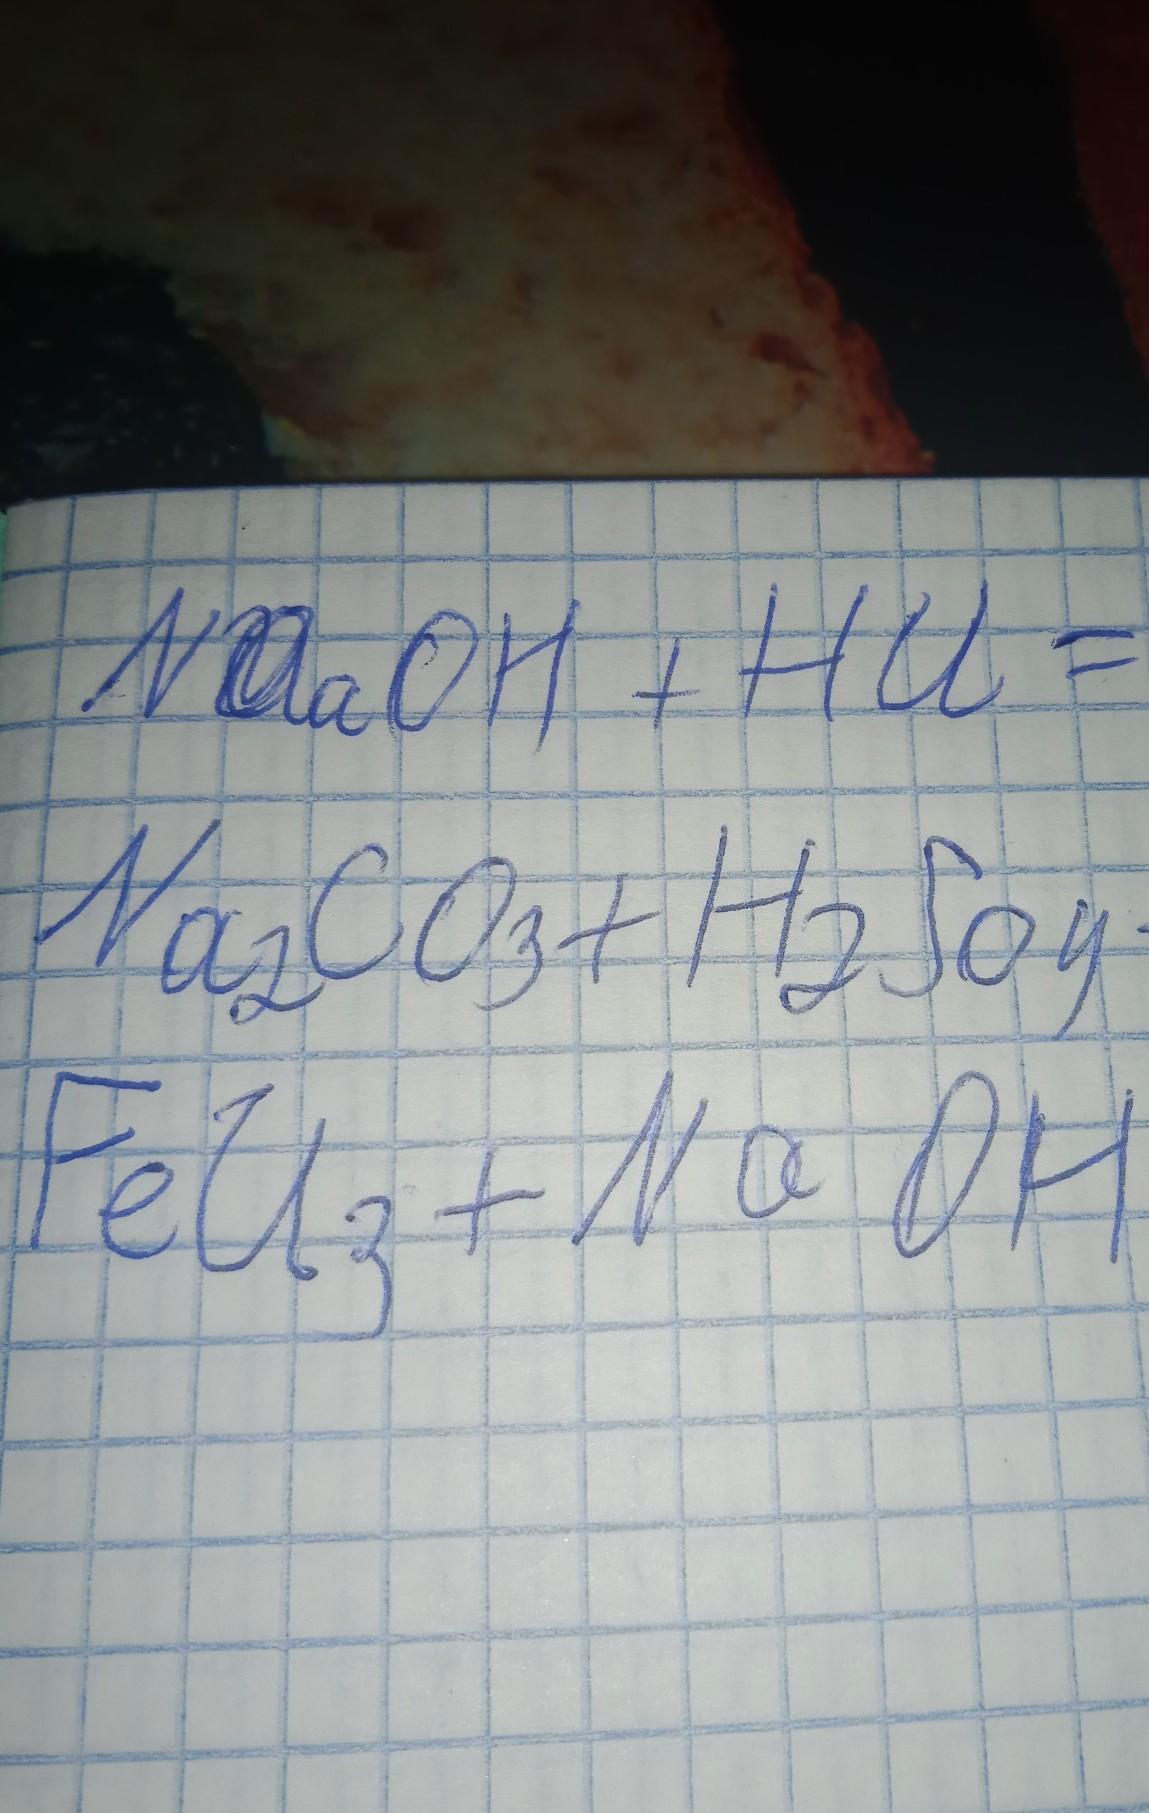 NaOH + HCl =
Na2CO3 + H2SO4 -
FeCl3 + NaOH